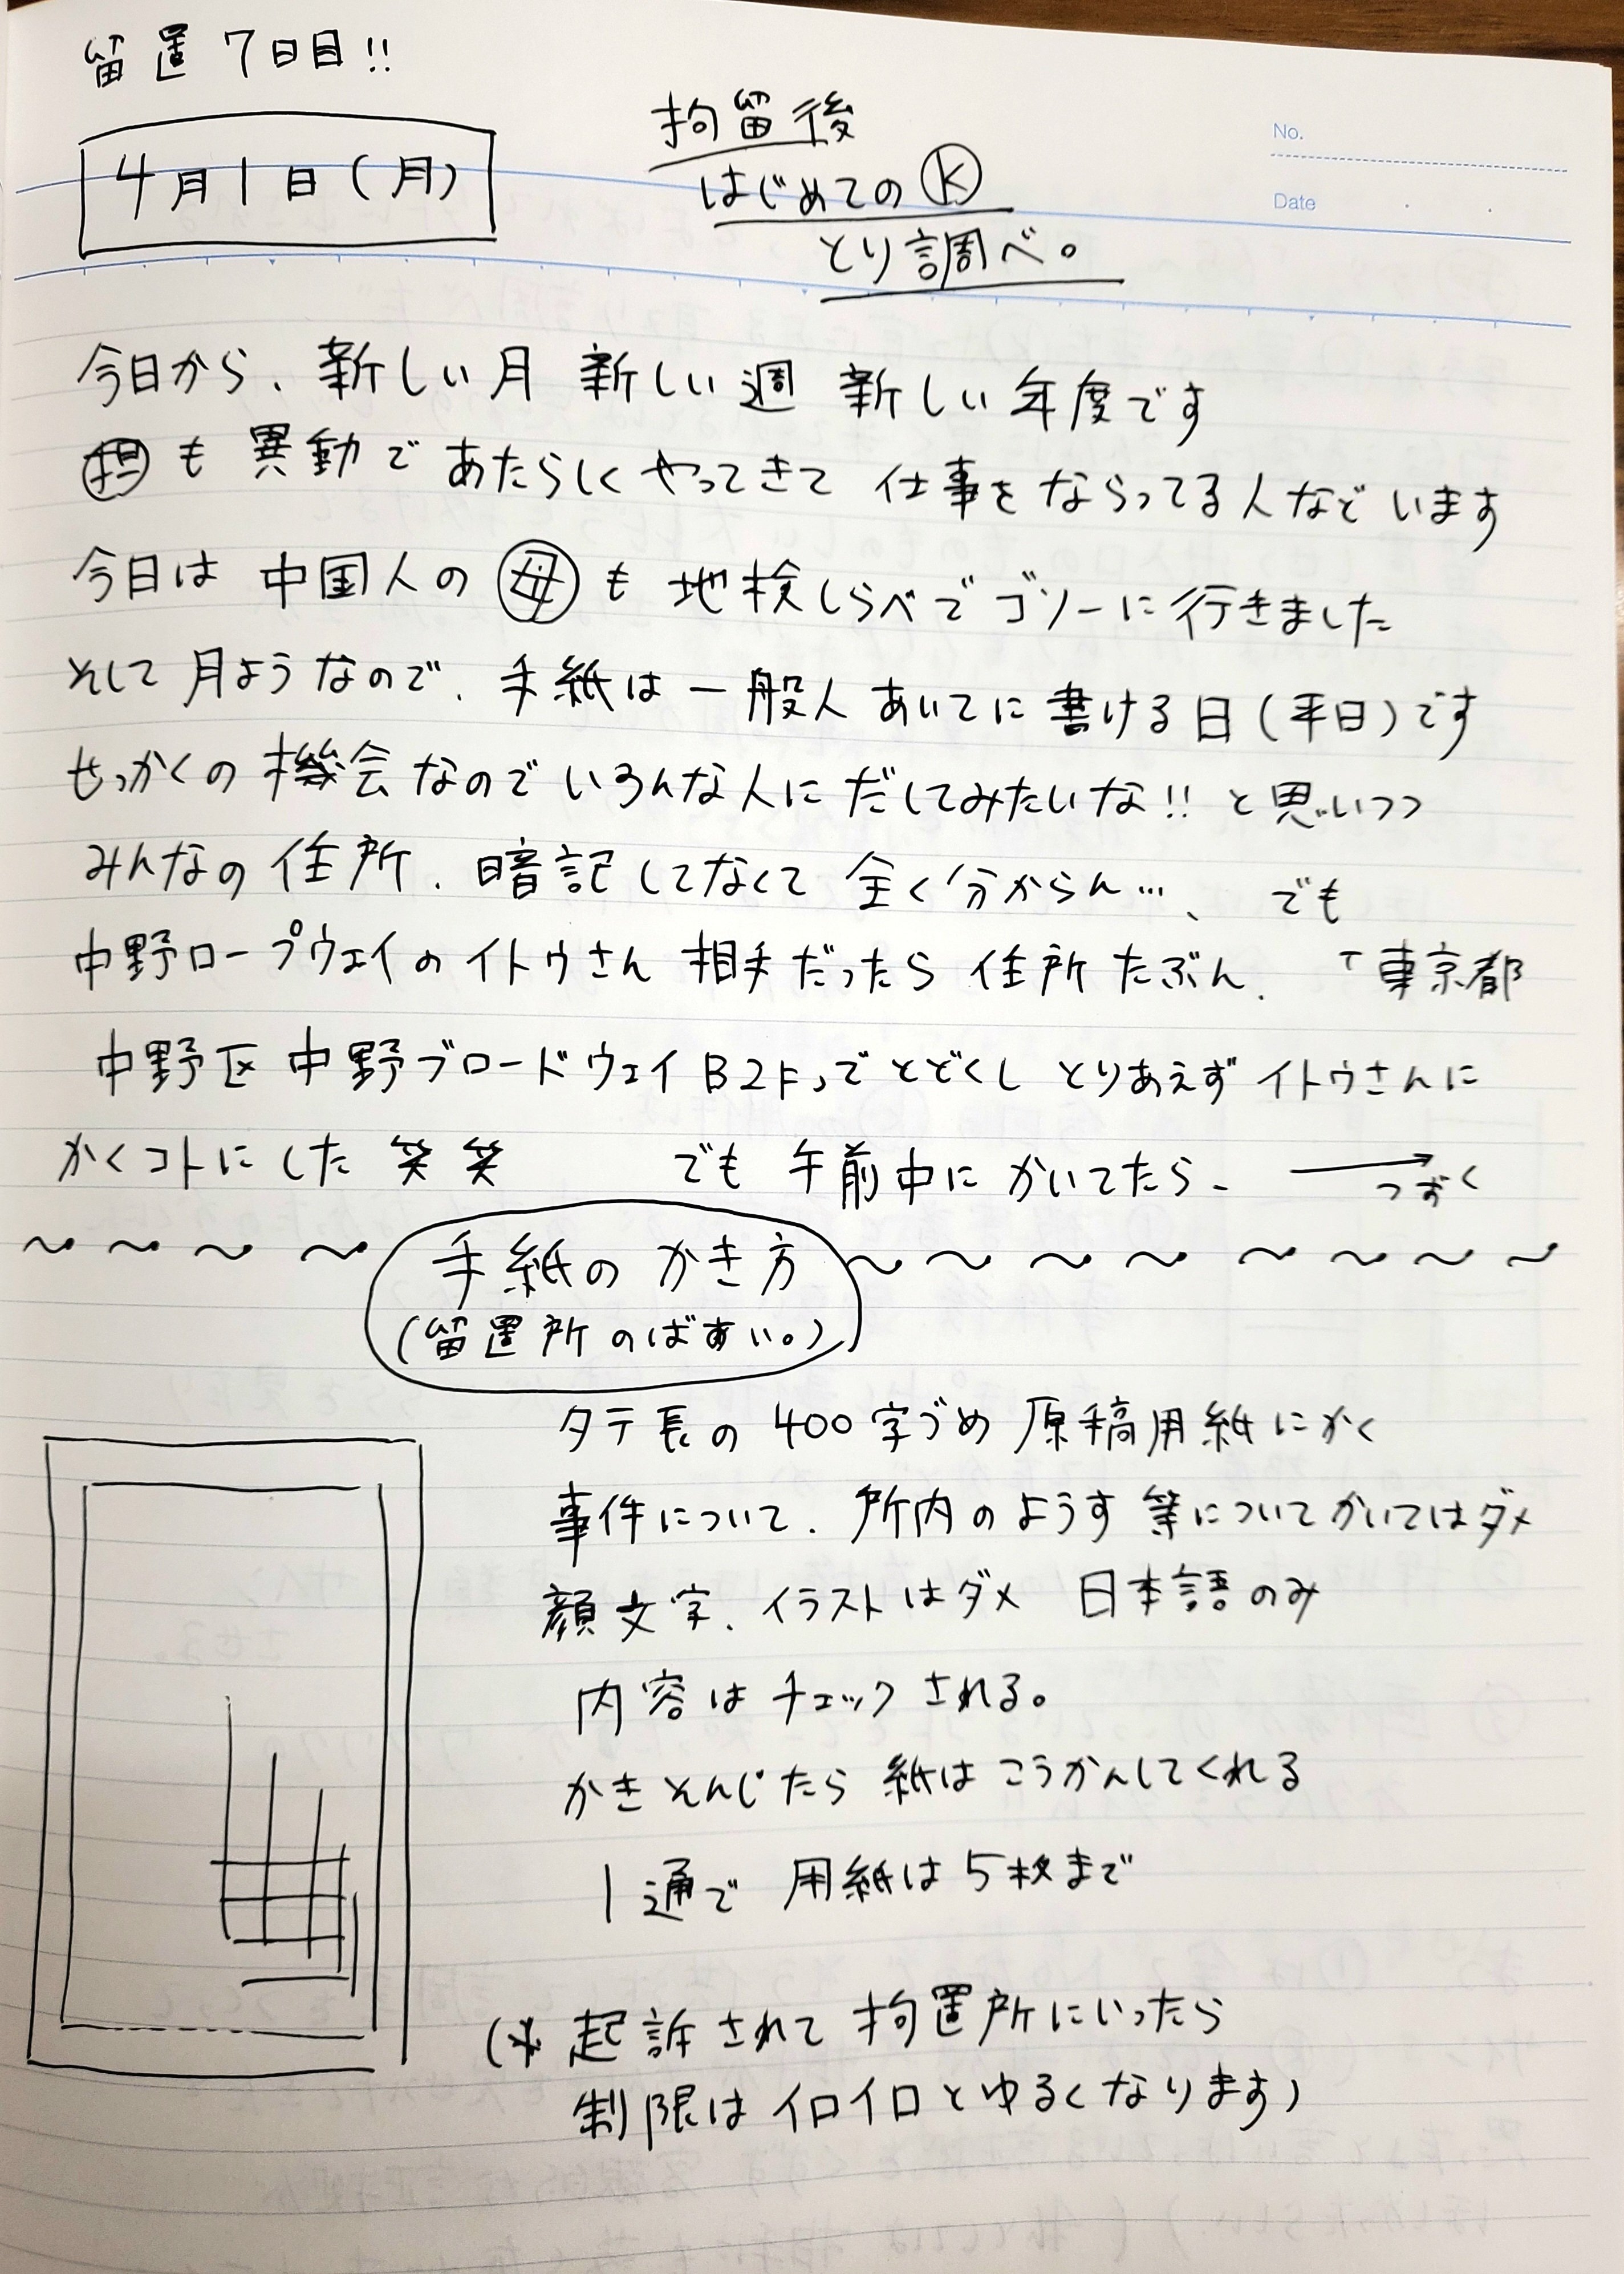 留置 7日目!!
4月1日(月)
拘留後
はじめてのⓀ
とり調べ。
No.
Date
今日から、新しい月 新しい週 新しい年度です
担も異動であたらしくやってきて 仕事をならってる人などいます
今日は 中国人の 母も 地検しらべでゴソーに行きました
そして月ようなので、手紙は一般人あいてに書ける日(平日)です
せっかくの機会なのでいろんな人にだしてみたいな!! と思いつつ
みんなの住所、暗記してなくて 全く分からん…、 でも
中野ロープウェイのイトウさん相手だったら住所たぶん、「東京都
中野区中野ブロードウェイB2F」でとどくし とりあえずイトウさんに
かくコトにした 笑笑 でも 午前中にかいてたら、 → つずく
手紙のかき方
(留置所のばあい。)
タテ長の400字づめ原稿用紙にかく
事件について、所内のようす等についてかいてはダメ
顔文字、イラストはダメ 日本語のみ
内容はチェックされる。
かきそんじたら紙はこうかんしてくれる
1通で 用紙は5枚まで
(※起訴されて拘置所にいったら
制限はイロイロとゆるくなります)